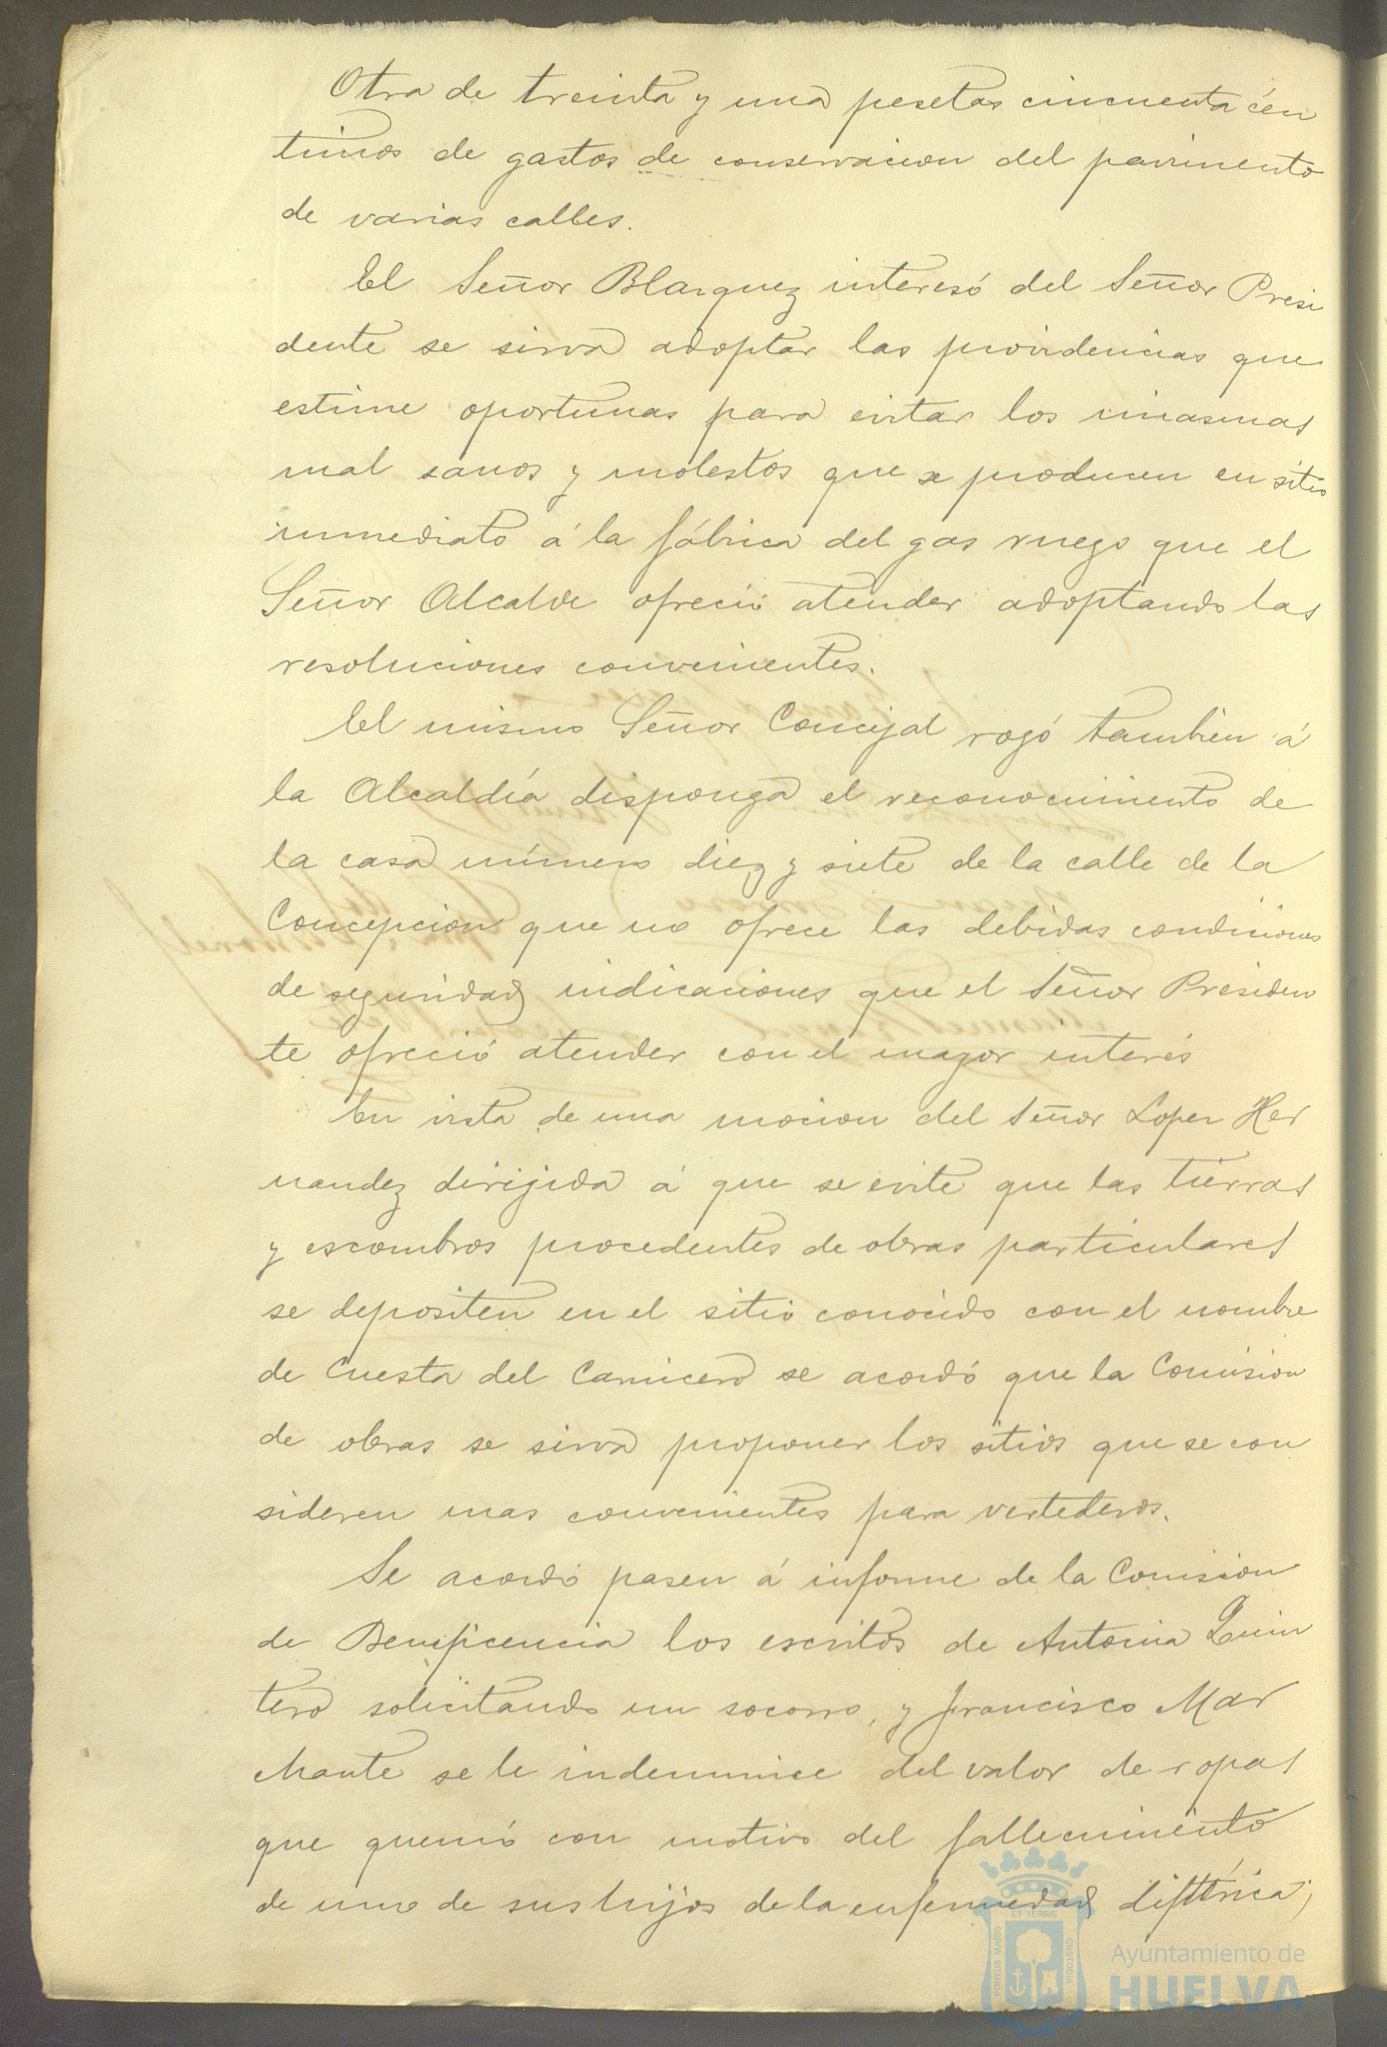 Otra de treinta y una pesetas cincuenta cén
timos de gastos de conservacion del pavimento
de varias calles.
El Señor Blazquez interesó del Señor Presi
dente se sirva adoptar las providencias que
estime oportunas para evitar los miasmas
mal sanos y molestos que se producen en sitio
inmediato á la fábrica del gas ruego que el
Señor Alcalde ofreció atender adoptando las
resoluciones convenientes.
El mismo Señor Concejal rogó tambien á
la Alcaldía disponga el reconocimiento de
la casa número diez y siete de la calle de la
Concepcion que no ofrece las debidas condiciones
de seguridad indicaciones que el Señor Presiden
te ofreció atender con el mayor interés
En vista de una mocion del Señor Lopez Her
nandez dirijida á que se evite que las tierras
y escombros procedentes de obras particulares
se depositen en el sitio conocido con el nombre
de Cuesta del Carnicero se acordó que la Comision
de obras se sirva proponer los sitios que se con
sideren mas convenientes para vertederos.
Se acordó pasen á informe de la Comision
de Beneficencia los escritos de Antonia Quin
tero solicitando un socorro, y Francisco Mar
chante se le indemnice del valor de ropas
que quemó con motivo del fallecimiento
de uno de sus hijos de la enfermedad diftérica;
PORTUS MARIS
ET TERRÆ
CUSTODIA
Ayuntamiento de
HUELVA